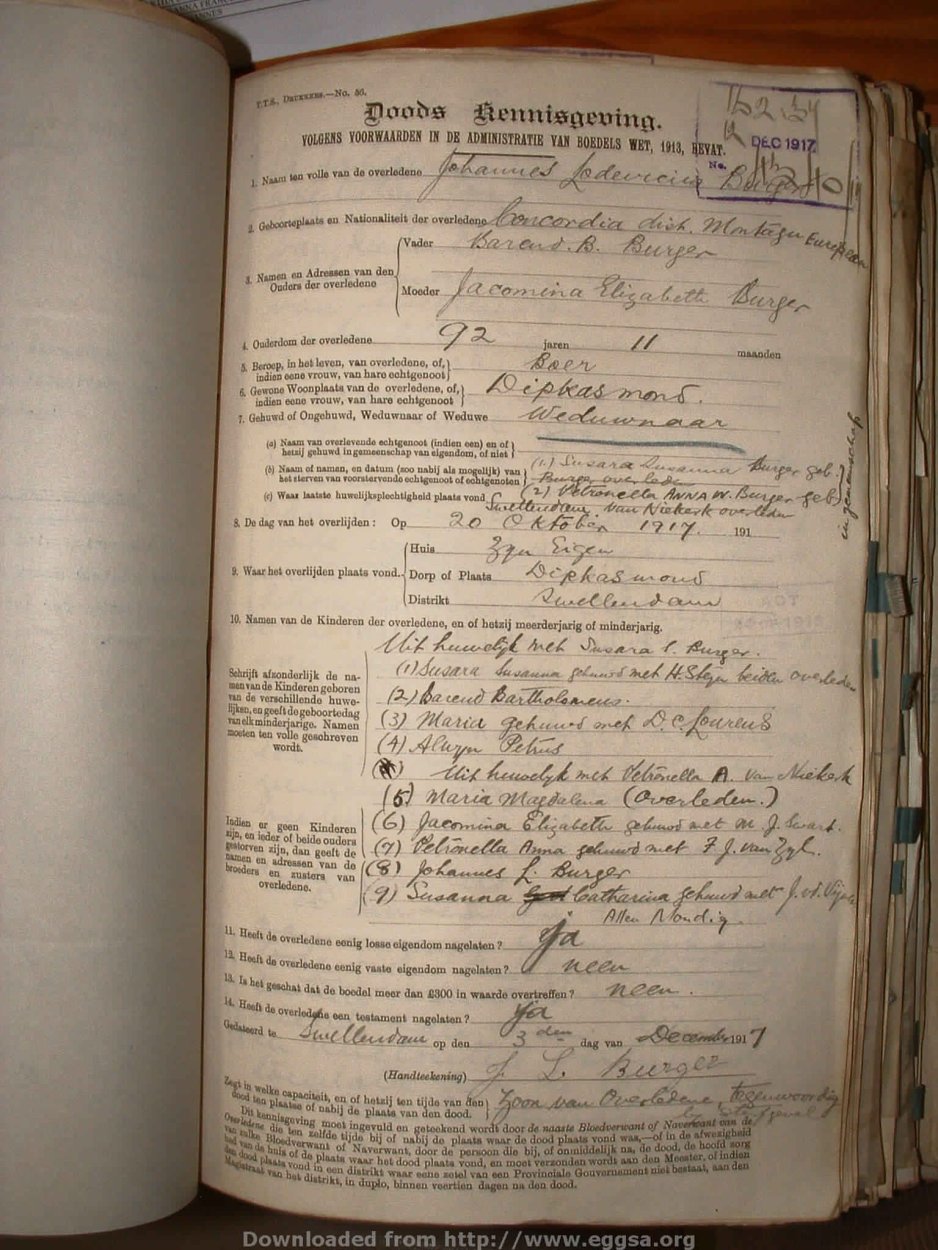 T.T.S., DRUKKERS.—No. 56.
Doods Kennisgeving.
DEC 1917
VOLGENS VOORWAARDEN IN DE ADMINISTRATIE VAN BOEDELS WET, 1913, BEVAT.
No.
1. Naam ten volle van de overledene Johannes Lodevicius Burger
2. Geboorteplaats en Nationaliteit der overledene Concordia dist. Montagu European
3. Namen en Adressen van den Ouders der overledene
Vader Barend. B. Burger
Moeder Jacomina Elizabeth Burger
4. Ouderdom der overledene 92 jaren 11 maanden
5. Beroep, in het leven, van overledene, of, indien eene vrouw, van hare echtgenoot Boer
6. Gewone Woonplaats van de overledene, of, indien eene vrouw, van hare echtgenoot Dipkasmond.
7. Gehuwd of Ongehuwd, Weduwnaar of Weduwe Weduwnaar
(a) Naam van overlevende echtgenoot (indien een) en of hetzij gehuwd in gemeenschap van eigendom, of niet
(b) Naam of namen, en datum (zoo nabij als mogelijk) van het sterven van voorstervende echtgenoot of echtgenoten
(1.) Susara Susanna Burger geb.
Burger overleden
(2) Petronella ANNA W. Burger geb
van Niekerk overleden
in gemeenschap
(c) Waar laatste huwelijksplechtigheid plaats vond Swellendam
8. De dag van het overlijden: Op 20 Oktober 1917. 191
9. Waar het overlijden plaats vond.
Huis Zyn Eigen
Dorp of Plaats Dipkasmond
Distrikt Swellendam
10. Namen van de Kinderen der overledene, en of hetzij meerderjarig of minderjarig.
Uit huwelijk met Susara S. Burger.
Schrijft afzonderlijk de namen van de Kinderen geboren van de verschillende huwelijken, en geeft de geboortedag van elk minderjarige. Namen moeten ten volle geschreven wordt.
(1) Susara Susanna gehuwd met H. Steyn beiden overleden
(2) Barend Bartholomeus.
(3) Maria gehuwd met D. C. Lourens
(4) Alwyn Petrus
Uit huwelyk met Petronella A. van Niekerk
(5) Maria Magdalena (Overleden.)
Indien er geen Kinderen zijn, en ieder of beide ouders gestorven zijn, dan geeft de namen en adressen van de broeders en zusters van overledene.
(6) Jacomina Elizabeth gehuwd met M. J. Swart.
(7) Petronella Anna gehuwd met F. J. van Zyl.
(8) Johannes L. Burger
(9) Susanna Catharina gehuwd met J. v.d. Vijver
Allen Mondig.
11. Heeft de overledene eenig losse eigendom nagelaten? Ja
12. Heeft de overledene eenig vaste eigendom nagelaten? neen
13. Is het geschat dat de boedel meer dan £300 in waarde overtreffen? neen.
14. Heeft de overledene een testament nagelaten? Ja
Gedateerd te Swellendam op den 3den dag van December 1917
(Handteekening) J. L. Burger
Zegt in welke capaciteit, en of hetzij ten tijde van den dood ten plaatse of nabij de plaats van den dood. Zoon van Overledene, tegenwoordig
by sterfgeval
Dit kennisgeving moet ingevuld en geteekend wordt door de naaste Bloedverwant of Naverwant van de
Overledene die ten zelfde tijde bij of nabij de plaats waar de dood plaats vond was,—of in de afwezigheid
van zulke Bloedverwant of Naverwant, door de persoon die bij, of onmiddelijk na, de dood, de hoofd zorg
had van de huis of de plaats waar het dood plaats vond, en moet verzonden wordt aan den Meester, of indien
den dood plaats vond in een distrikt waar eene zetel van een Provinciale Gouvernement niet bestaat, aan den
Magistraat van het distrikt, in duplo, binnen veertien dagen na den dood.
Downloaded from http://www.eggsa.org